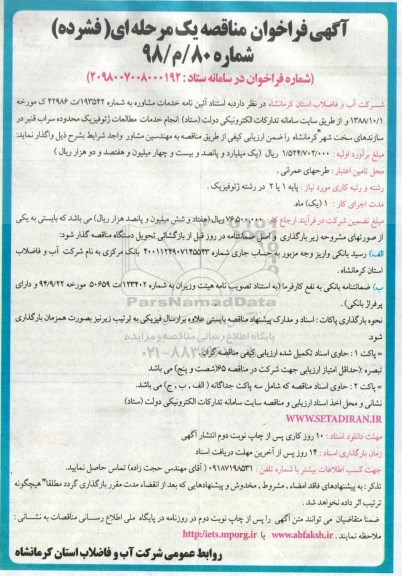 آگهی فراخوان مناقصه یک مرحله ای( فشرده)
شماره ۸۰/م/۹۸
(شماره فراخوان در سامانه ستاد : ۲۰۹۸۰۰۷۰۰۸۰۰۰۱۹۲)
شرکت آب و فاضلاب استان کرمانشاه در نظر دارد به استناد آئین نامه خدمات مشاوره به شماره ۱۹۳۵۴۲/ت ۴۲۹۸۶ ک مورخه
۱۳۸۸/۱۰/۱ و از طریق سایت سامانه تدارکات الکترونیکی دولت (ستاد) انجام خدمات مطالعات ژئوفیزیک محدوده سراب قنبر در
سازندهای سخت شهر کرمانشاه را ضمن ارزیابی کیفی از طریق مناقصه به مهندسین مشاور واجد شرایط بشرح ذیل واگذار نماید:
مبلغ برآورد اولیه : ۱/۵۲۴/۷۰۲/۰۰۰ ریال (یک میلیارد و پانصد و بیست و چهار میلیون و هفتصد و دو هزار ریال )
محل تامین اعتبار : طرحهای عمرانی .
رشته و رتبه کاری مورد نیاز : پایه ۱ یا ۲ در رشته ژئوفیزیک .
مدت اجرای کار : ۱ (یک) ماه.
مبلغ تضمین شرکت در فرآیند ارجاع کار : ۷۶/۵۰۰/۰۰۰ ریال (هفتاد و شش میلیون و پانصد هزار ریال) می باشد که بایستی به یکی
از صورتهای مشروحه زیر بارگذاری و اصل ضمانتنامه در روز قبل از بازگشائی تحویل دستگاه مناقصه گذار شود:
الف) رسید بانکی واریز وجه مزبور به حساب جاری شماره ۴۰۰۱۱۲۴۹۰۷۱۴۵۵۴۳ بانک مرکزی به نام شرکت آب و فاضلاب
استان کرمانشاه .
ب) ضمانتنامه بانکی به نفع کارفرما (به استناد تصویب نامه هیئت وزیران به شماره ۱۲۳۴۰۲/ت ۵۰۶۵۹ مورخه ۹۴/۹/۲۲ و دارای
پرفراژ بانکی) .
نحوه بارگذاری پاکات : اسناد و مدارک پیشنهاد مناقصه بایستی علاوه برارسال فیزیکی به ترتیب زیر نیز بصورت همزمان بارگذاری
شود.
= پاکت ۱ : حاوی اسناد تکمیل شده ارزیابی کیفی مناقصه گران.
تبصره :(حداقل امتیاز ارزیابی جهت شرکت در مناقصه ۶۵(شصت و پنج) می باشد
= پاکت ۲ : حاوی اسناد مناقصه که شامل سه پاکت جداگانه ( الف ، ب ، ج) می باشد.
نشانی و محل اخذ اسناد ارزیابی و مناقصه سایت سامانه تدارکات الکترونیکی دولت (ستاد)
WWW.SETADIRAN.IR
مهلت دانلود اسناد : ۱۰ روز کاری پس از چاپ نوبت دوم انتشار آگهی
زمان بارگذاری اسناد : ۱۴ روز پس از آخرین مهلت دریافت اسناد
جهت کسب اطلاعات بیشتر با شماره تلفن : ۰۹۱۸۷۱۹۸۵۳۱ ( آقای مهندس حجت زاده) تماس حاصل نمایید.
تذکر : به پیشنهادهای فاقد امضاء ، مشروط ، مخدوش و پیشنهادهایی که بعد از انقضاء مدت مقرر بارگذاری گردد مطلقا" هیچگونه
ترتیب اثر داده نخواهد شد .
ضمنا متقاضیان می توانند متن آگهی را پس از چاپ نوبت دوم در روزنامه در پایگاه ملی اطلاع رسانی مناقصات به نشانی :
http:/iets.mporg.ir یا www.abfaksh.ir ملاحظه نمایند .
روابط عمومی شرکت آب و فاضلاب استان کرمانشاه
ParsNamadData
پایگاه اطلاع رسانی مناقصه و مزایده